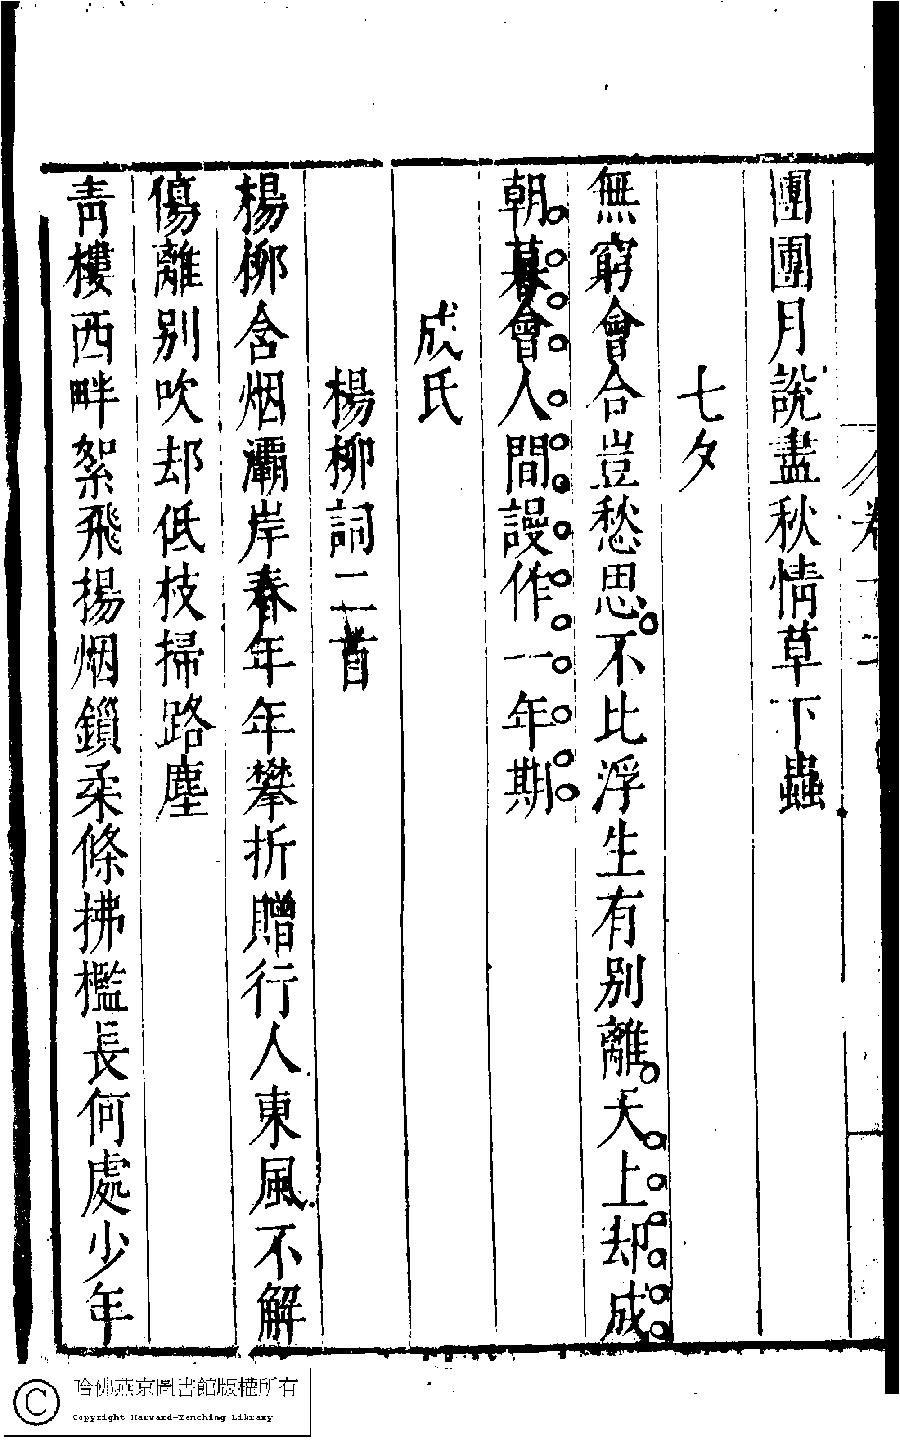 團團月說盡秋情草下蟲
七夕
無窮會合豈愁思不比浮生有別離天上却成
朝暮會人間謾作一年期
成氏
楊柳詞二首
楊柳含烟灞岸春年年攀折贈行人東風不解
傷離別吹却低枝掃路塵
青樓西畔絮飛揚烟鎖柔條拂檻長何處少年
哈佛燕京圖書館版權所有
Copyright Harvard-Yenching Library